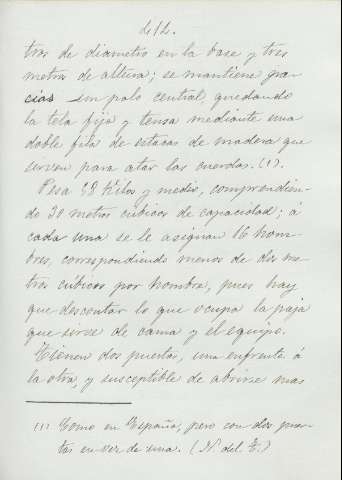 212.
tros de diametro en la base y tres
metros de altura; se mantiene gra-
cias un palo central, quedando
la tela fija y tensa mediante una
doble fila de estacas de madera que
sirven para atar las cuerdas. (1).
Pesa 58 kilos y medio, comprendien-
do 30 metros cúbicos de capacidad; á
cada una se le asignan 16 hom-
bres, correspondiendo menos de dos me-
tros cúbicos por hombre, pues hay
que descontar lo que ocupa la paja
que sirve de cama y el equipo.
Tienen dos puertas, una enfrente á
la otra, y susceptible de abrirse mas
(1) Como en España, pero con dos puer-
tas en vez de una. (N. del T.)